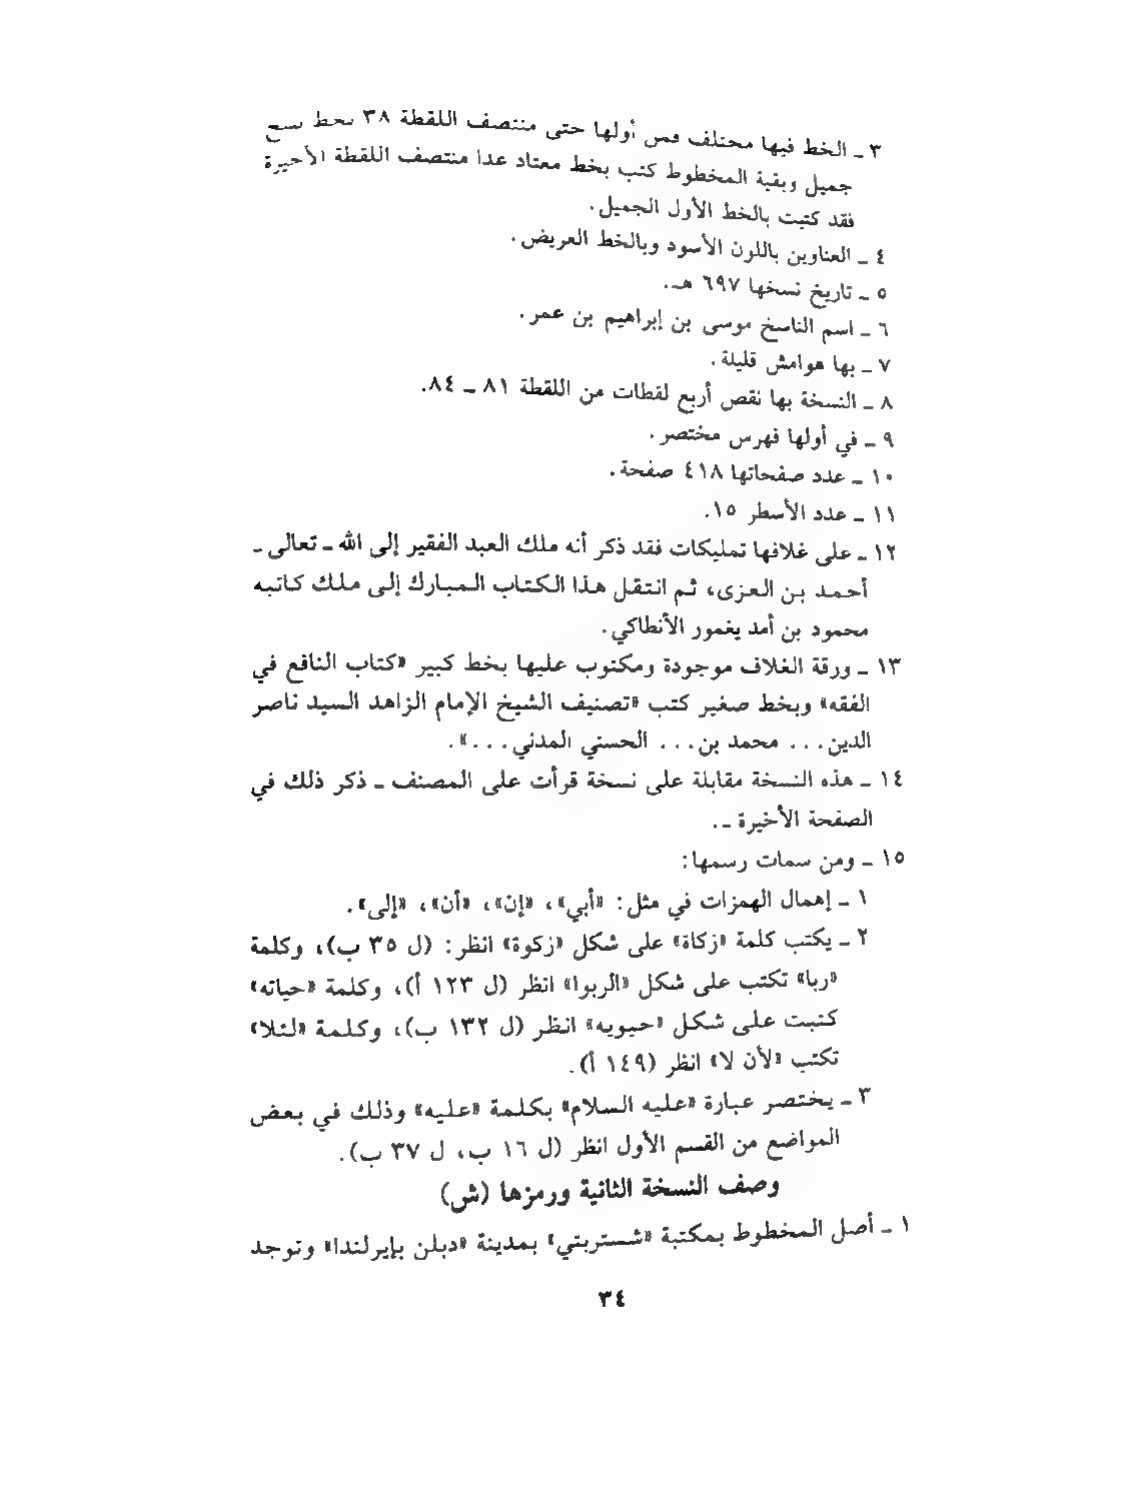 ٣ ـ الخط فيها مختلف فمن أولها حتى منتصف اللقطة ٣٨ بخط نسخ
جميل وبقية المخطوط كتب بخط معتاد عدا منتصف اللقطة الأخيرة
فقد كتبت بالخط الأول الجميل.
٤ ـ العناوين باللون الأسود وبالخط العريض.
٥ ـ تاريخ نسخها ٦٩٧ هـ.
٦ ـ اسم الناسخ موسى بن إبراهيم بن عمر.
٧ ـ بها هوامش قليلة.
٨ ـ النسخة بها نقص أربع لقطات من اللقطة ٨١ ـ ٨٤.
٩ ـ في أولها فهرس مختصر.
١٠ ـ عدد صفحاتها ٤١٨ صفحة.
١١ ـ عدد الأسطر ١٥.
١٢ ـ على غلافها تمليكات فقد ذكر أنه ملك العبد الفقير إلى الله ـ تعالى ـ
أحمد بن العزى، ثم انتقل هذا الكتاب المبارك إلى ملك كاتبه
محمود بن أمد يغمور الأنطاكي.
١٣ ـ ورقة الغلاف موجودة ومكتوب عليها بخط كبير «كتاب النافع في
الفقه» وبخط صغير كتب «تصنيف الشيخ الإمام الزاهد السيد ناصر
الدين... محمد بن... الحسني المدني...».
١٤ ـ هذه النسخة مقابلة على نسخة قرأت على المصنف ـ ذكر ذلك في
الصفحة الأخيرة ـ.
١٥ ـ ومن سمات رسمها:
١ ـ إهمال الهمزات في مثل: «أبي»، «إن»، «أن»، «إلى».
٢ ـ يكتب كلمة «زكاة» على شكل «زكوة» انظر: (ل ٣٥ ب)، وكلمة
«ربا» تكتب على شكل «الربوا» انظر (ل ١٢٣ أ)، وكلمة «حياته»
كتبت على شكل «حيويه» انظر (ل ١٣٢ ب)، وكلمة «لئلا»
تكتب «لأن لا» انظر (١٤٩ أ).
٣ ـ يختصر عبارة «عليه السلام» بكلمة «عليه» وذلك في بعض
المواضع من القسم الأول انظر (ل ١٦ ب، ل ٣٧ ب).
وصف النسخة الثانية ورمزها (ش)
١ ـ أصل المخطوط بمكتبة «شستربتي» بمدينة «دبلن بإيرلندا» وتوجد
٣٤